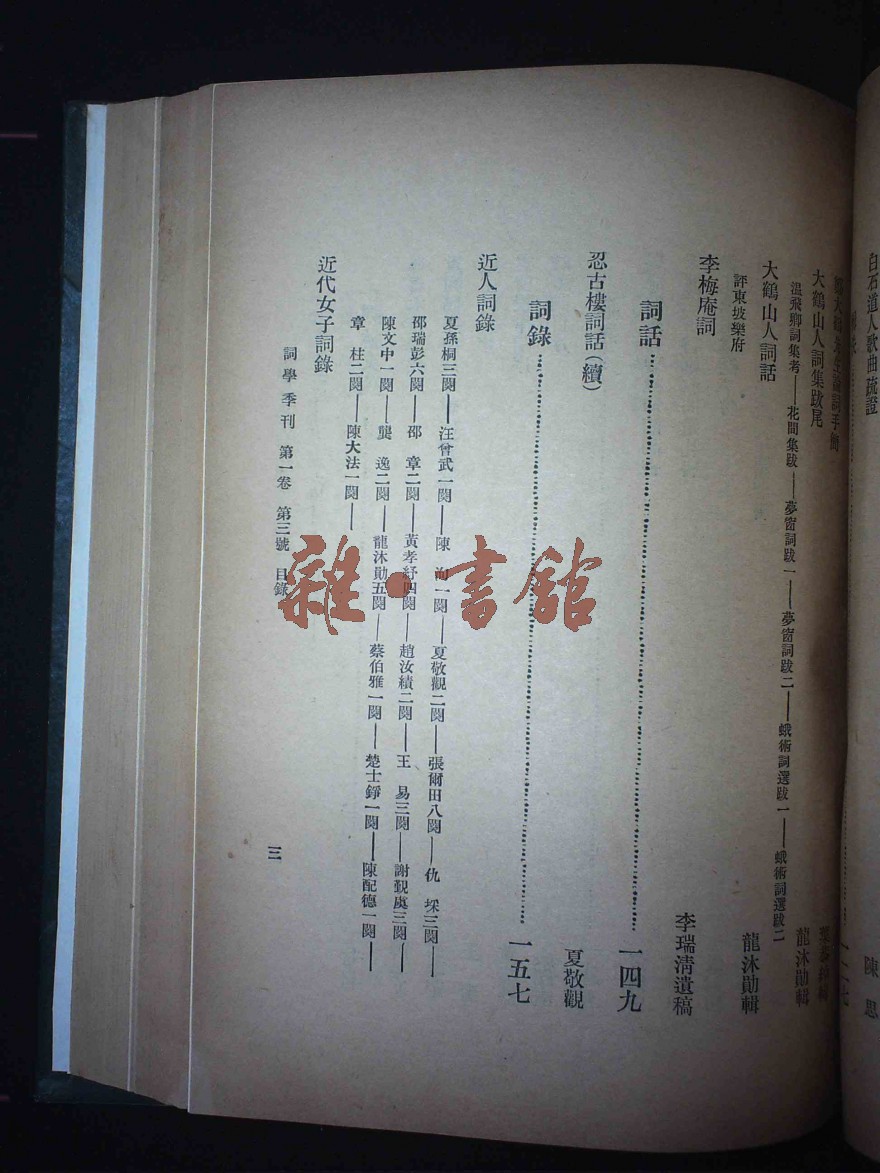 白石道人歌曲疏證
陳思
大鶴山人詞集跋尾
龍沐勛輯
溫飛卿詞集考——花間集跋——夢窗詞跋一——夢窗詞跋二——蛾術詞選跋一——蛾術詞選跋二
大鶴山人詞話
龍沐勛輯
評東坡樂府
李梅庵詞
李瑞清遺稿
詞話
一四九
忍古樓詞話(續)
夏敬觀
詞錄
一五七
近人詞錄
夏孫桐三闋——汪曾武一闋——陳 洵一闋——夏敬觀二闋——張爾田八闋——仇 埰三闋——
邵瑞彭六闋——邵 章二闋——黃孝紓四闋——趙汝績二闋——王 易三闋——謝覲虞三闋——
陳文中一闋——龔 逸二闋——龍沐勛五闋——蔡伯雅一闋——楚士錚一闋——陳配德一闋——
章 柱二闋——陳大法一闋——
近代女子詞錄
詞學季刊 第一卷 第三號 目錄
三
雜·書館